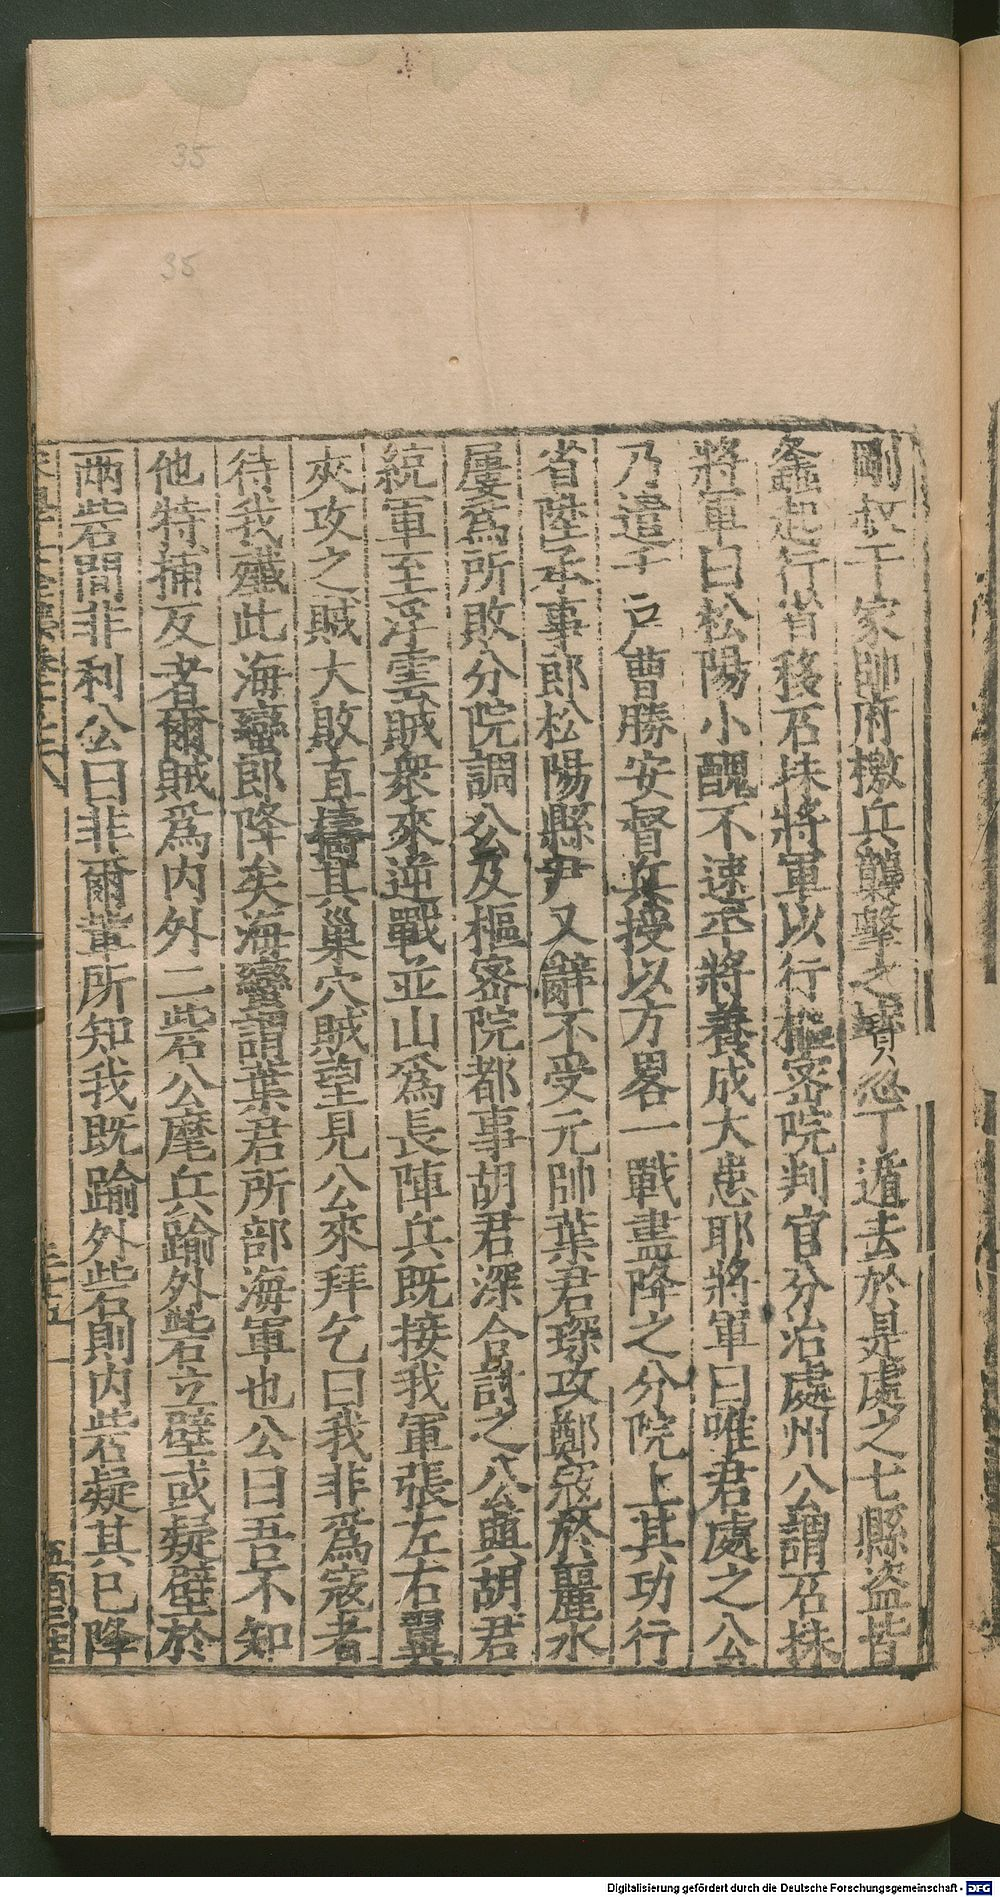 剛叔干家帥府檄兵襲擊之寶忍丁遁去於是處之七縣盗皆
螽起行省移石抹將軍以行樞密院判官分治處州公謂石抹
將軍曰松陽小醜不速平將養成大患耶將軍曰唯君處之公
乃遣千戶曹勝安督兵授以方畧一戰盡降之分院上其功行
省陞承事郎松陽縣尹又辭不受元帥葉君琛攻鄭寇於麗水
屢爲所敗分院調公及樞密院都事胡君深合討之公與胡君
統軍至浮雲賊衆來逆戰並山爲長陣兵既接我軍張左右翼
夾攻之賊大敗直擣其巢穴賊望見公來拜乞曰我非爲寇者
待我殲此海蠻郎降矣海蠻謂葉君所部海軍也公曰吾不知
他特捕反者爾賊爲內外二砦公麾兵踰外砦立壁或疑壁於
兩砦間非利公曰非爾輩所知我既踰外砦則內砦疑其已降
三十五
35
35
Digitalisierung gefördert durch die Deutsche Forschungsgemeinschaft - DFG